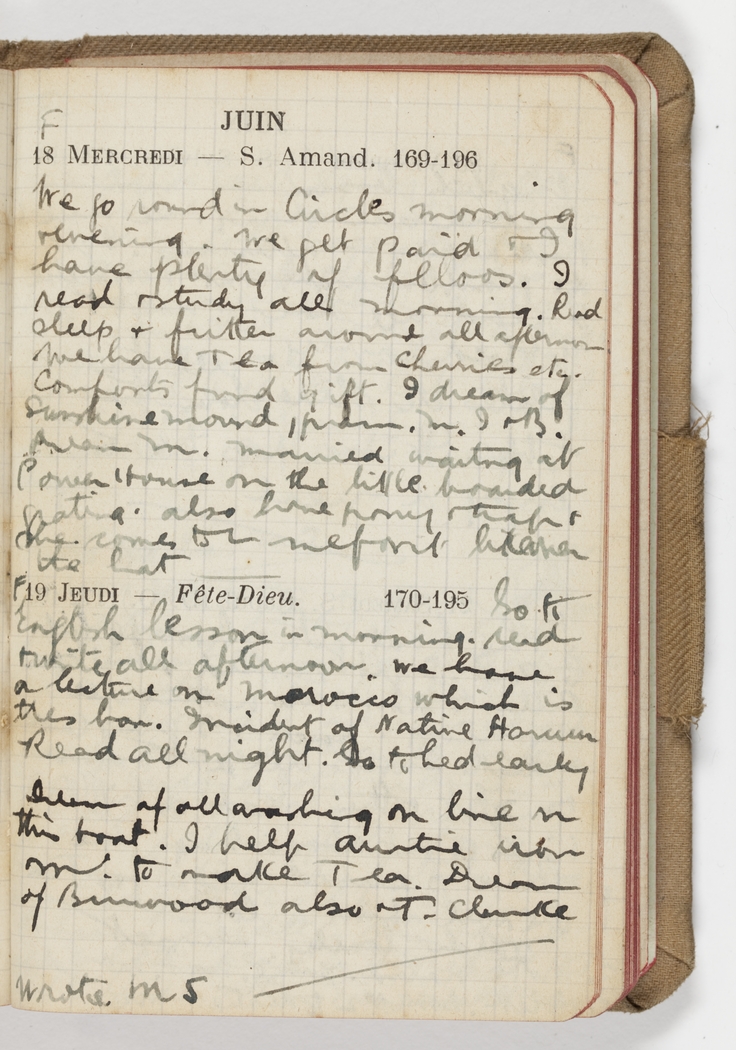 JUIN
F
18 MERCREDI — S. Amand. 169-196
We go round in Circles morning
+ evening. We get paid + I
have plenty of filoos. I
read + study all morning. Read
sleep + fritter around all afternoon
We have Tea from Cherries etc.
Comforts fund gift. I dream of
Sunshine mound, pram. M. I + B.
Dream M. married waiting at
Power House on the little boarded
grating. also have pony + trap +
she comes to me for it
the hat
F
19 JEUDI — Fête-Dieu. 170-195 Go to
English lesson in morning. read
+ write all afternoon. We have
a lecture on Marocco which is
tres bon. Incident of Native Harem
Read all night. Go to bed early
Dream of all washing on line in
this boat. I help auntie iron
M. to make Tea. Dream
of Burwood also + T. Clarke
Wrote. M 5